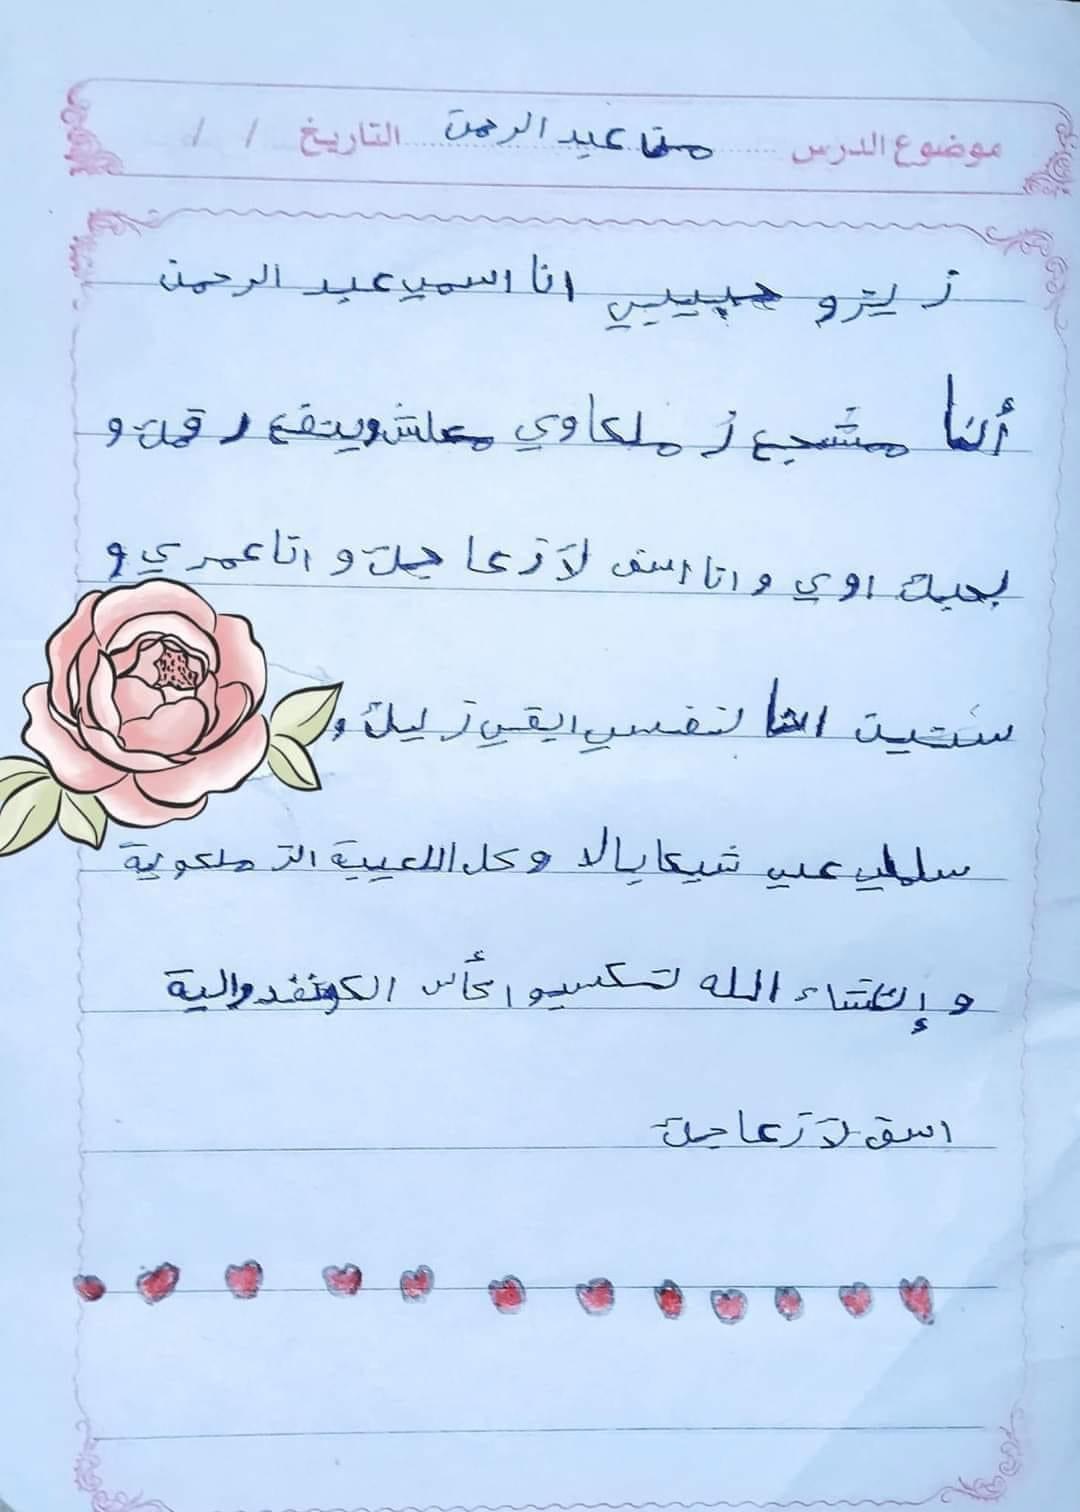 موضوع الدرس من عبد الرحمن التاريخ / /
زيزو حبيبي انا اسمي عبد الرحمن
أنا مشجع زملكاوي معلش وينفع رقمك و
بحبك اوي و انا اسف لازعاجك و انا عمري و
ستين انا لنفسي ابقي زليك و
سلملي علي شيكابالا وكل اللعيبة الزملكوية
و إنشاء الله تكسبو كأس الكونفدوالية
اسف لازعاجك